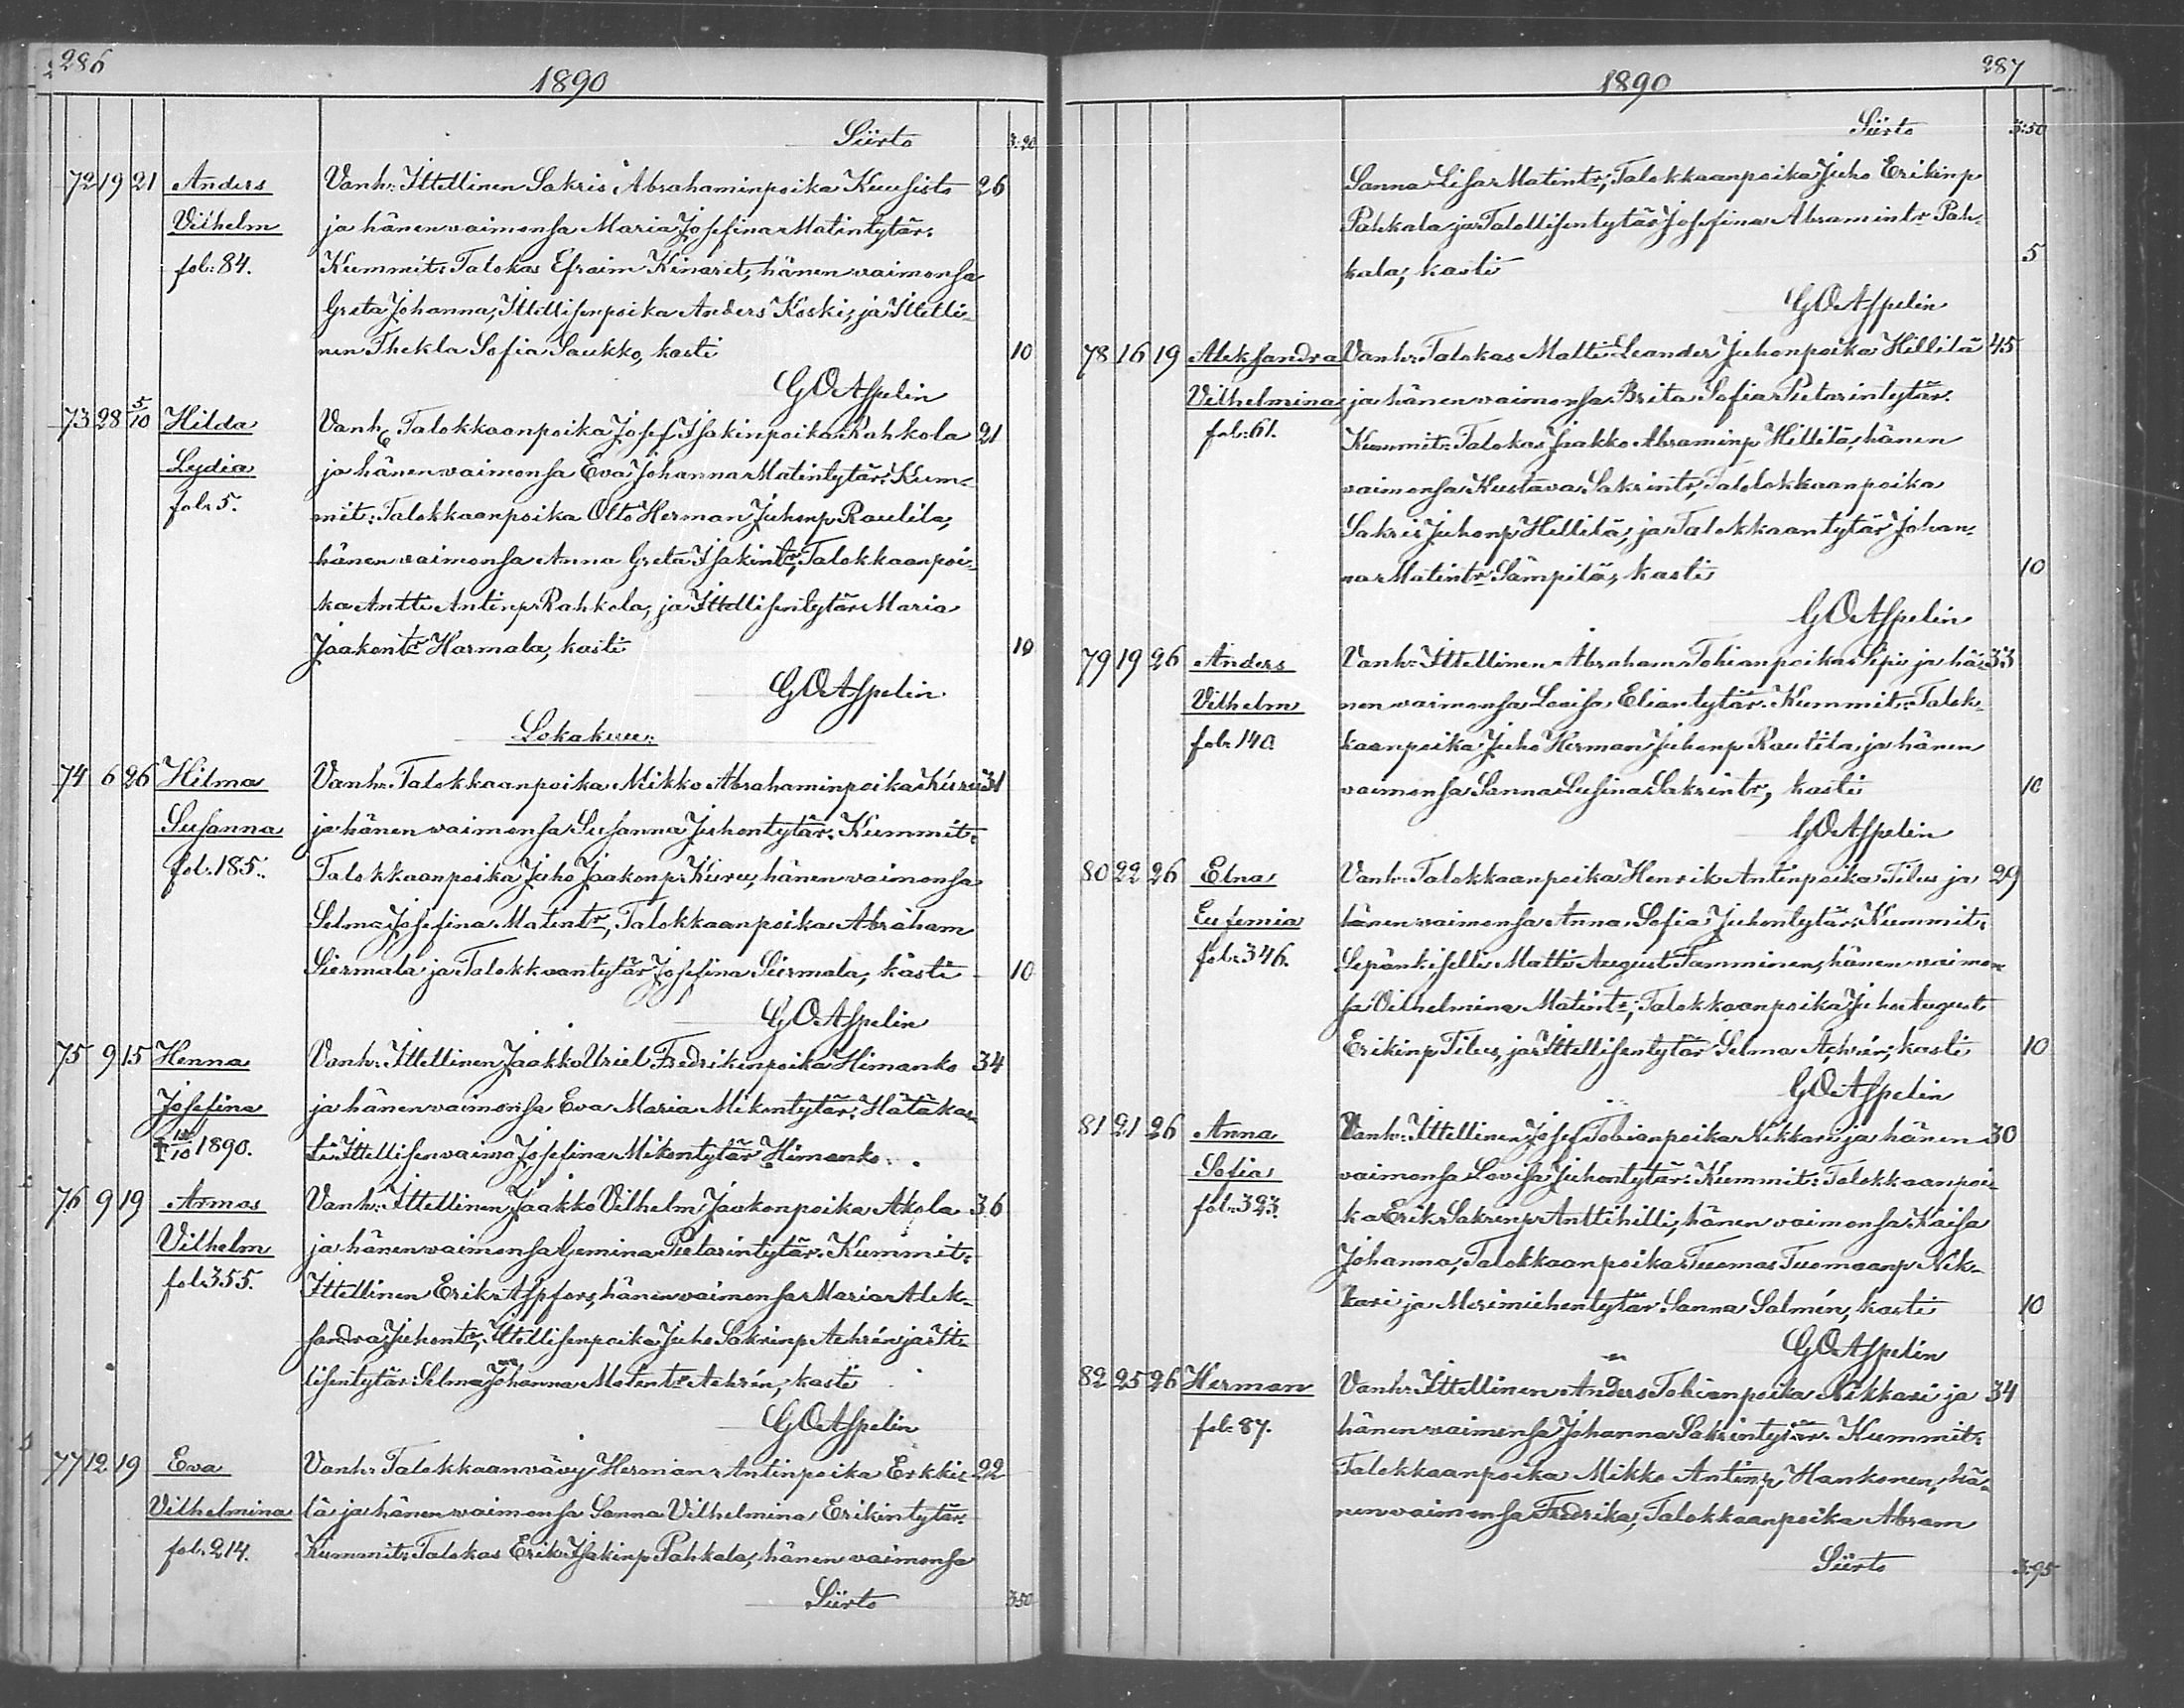 286
1890
Siirto 3:20
72 19 21 Anders Vanh: Ittellinen Sakris Abrahaminpoika Kuusisto 26
Vilhelm ja hänen vaimonsa Maria Josefina Matintytär.
fol: 84. Kummit: Talokas Efraim Kinaret, hänen vaimonsa
Greta Johanna, Ittellisenpoika Anders Koski, ja Ittelli-
nen Thekla Sofia Saukko, kasti 10
GOAspelin
73 28 5/10 Hilda Vanh: Talokkaanpoika Josef Isakinpoika Rahkola 21
Lydia ja hänen vaimonsa Eva Johanna Matintytär. Kum-
fol. 5. mit: Talokkaanpoika Otto Herman Juhonp Rautila,
hänen vaimonsa Anna Greta Isakintr, Talokkaanpoi-
ka Antti Antinp Rahkola, ja Ittellisentytär Maria
Jaakontr Harmala, kasti 10
GOAspelin
Lokakuu:
74 6 26 Hilma Vanh: Talokkaanpoika Mikko Abrahaminpoika Kuru 31
Susanna ja hänen vaimonsa Susanna Juhontytär. Kummit:
fol. 185. Talokkaanpoika Juho Jaakonp Kuru, hänen vaimonsa
Selma Josefina Matintr, Talokkaanpoika Abraham
Siermala ja Talokkaantytär Josefina Siermala, kasti 10
GOAspelin
75 9 15 Henna Vanh: Ittellinen Jaakko Uriel Fredrikinpoika Himanko 34
Josefina ja hänen vaimonsa Eva Maria Mikontytär. Hätäkas-
1890. ti: Ittellisenvaimo Josefina Mikontytär Himanko.
76 9 19 Armas Vanh: Ittellinen Jaakko Vilhelm Jaakonpoika Akola 36
Vilhelm ja hänen vaimonsa Gemina Pietarintytär. Kummit:
fol. 355. Ittellinen Erik Aspfors, hänen vaimonsa Maria Alek-
sandra Juhontr, Ittellisenpoika Juho Sakrinp Aehrén ja Itt-
lisentytär Selma Johanna Matintr Aehrén, kasti
GOAspelin
77 12 19 Eva Vanh: Talokkaanvävy Herman Antinpoika Erkki- 22
Vilhelmina lä ja hänen vaimonsa Sanna Vilhelmina Erikintytär.
fol. 214. Kummit: Talokas Erik Isakinp Pahkala, hänen vaimonsa
Siirto 3:50
287
1890
Siirto 3:50
Sanna Lisa Matintr, Talokkaanpoika Juho Erikinp
Pahkala ja Talollisentytär Josefina Abramintr Pah-
kala, kasti 5
GOAspelin
78 16 19 Aleksandra Vanh: Talokas Matti Leander Juhonpoika Hillilä 45
Vilhelmina ja hänen vaimonsa Brita Sofia Pietarintytär.
fol: 61. Kummit: Talokas Jaakko Abraminp Hillilä, hänen
vaimonsa Kustava Sakrintr, Talolokkaanpoika
Sakris Juhonp Hillilä, ja Talokkaantytär Johan-
na Matintr Sämpilä, kasti 10
GOAspelin
79 19 26 Anders Vanh: Ittellinen Abraham Tobianpoika Sipi ja hä- 33
Vilhelm nen vaimonsa Lovisa Eliantytär. Kummit: Talok-
fol. 140. kaanpoika Juho Herman Juhonp Rautila ja hänen
vaimonsa Sanna Lusina Sakrintr, kasti 10
GOAspelin
80 22 26 Elna Vanh: Talokkaanpoika Henrik Antinpoika Tilus ja 29
Eufemia hänen vaimonsa Anna Sofia Juhontytär. Kummit:
fol. 346. Sepänkiselli Matti August Tamminen, hänen vaimon-
sa Vilhelmina Matintr, Talokkaanpoika Juho August
Erikinp Tilus, ja Ittellisentytär Selma Aehrén, kasti 10
GOAspelin
81 21 26 Anna Vanh: Ittellinen Josef Tobianpoika Nikkari ja hänen 30
Sofia vaimonsa Lovisa Juhontytär. Kummit: Talokkaanpoi-
fol: 323. ka Erik Sakrinp Anttihilli, hänen vaimonsa Kaisa
Johanna, Talokkaanpoika Tuomas Tuomaanp Nik-
kari ja Merimiehentytär Sanna Salmén, kasti 10
GOAspelin
82 25 26 Herman Vanh: Ittellinen Anders Tobianpoika Nikkari ja 34
fol. 87. hänen vaimonsa Johanna Sakrintytär. Kummit:
Talokkaanpoika Mikko Antinp Hankonen, hä-
nen vaimonsa Fredrika, Talokkaanpoika Abram
Siirto 3:95